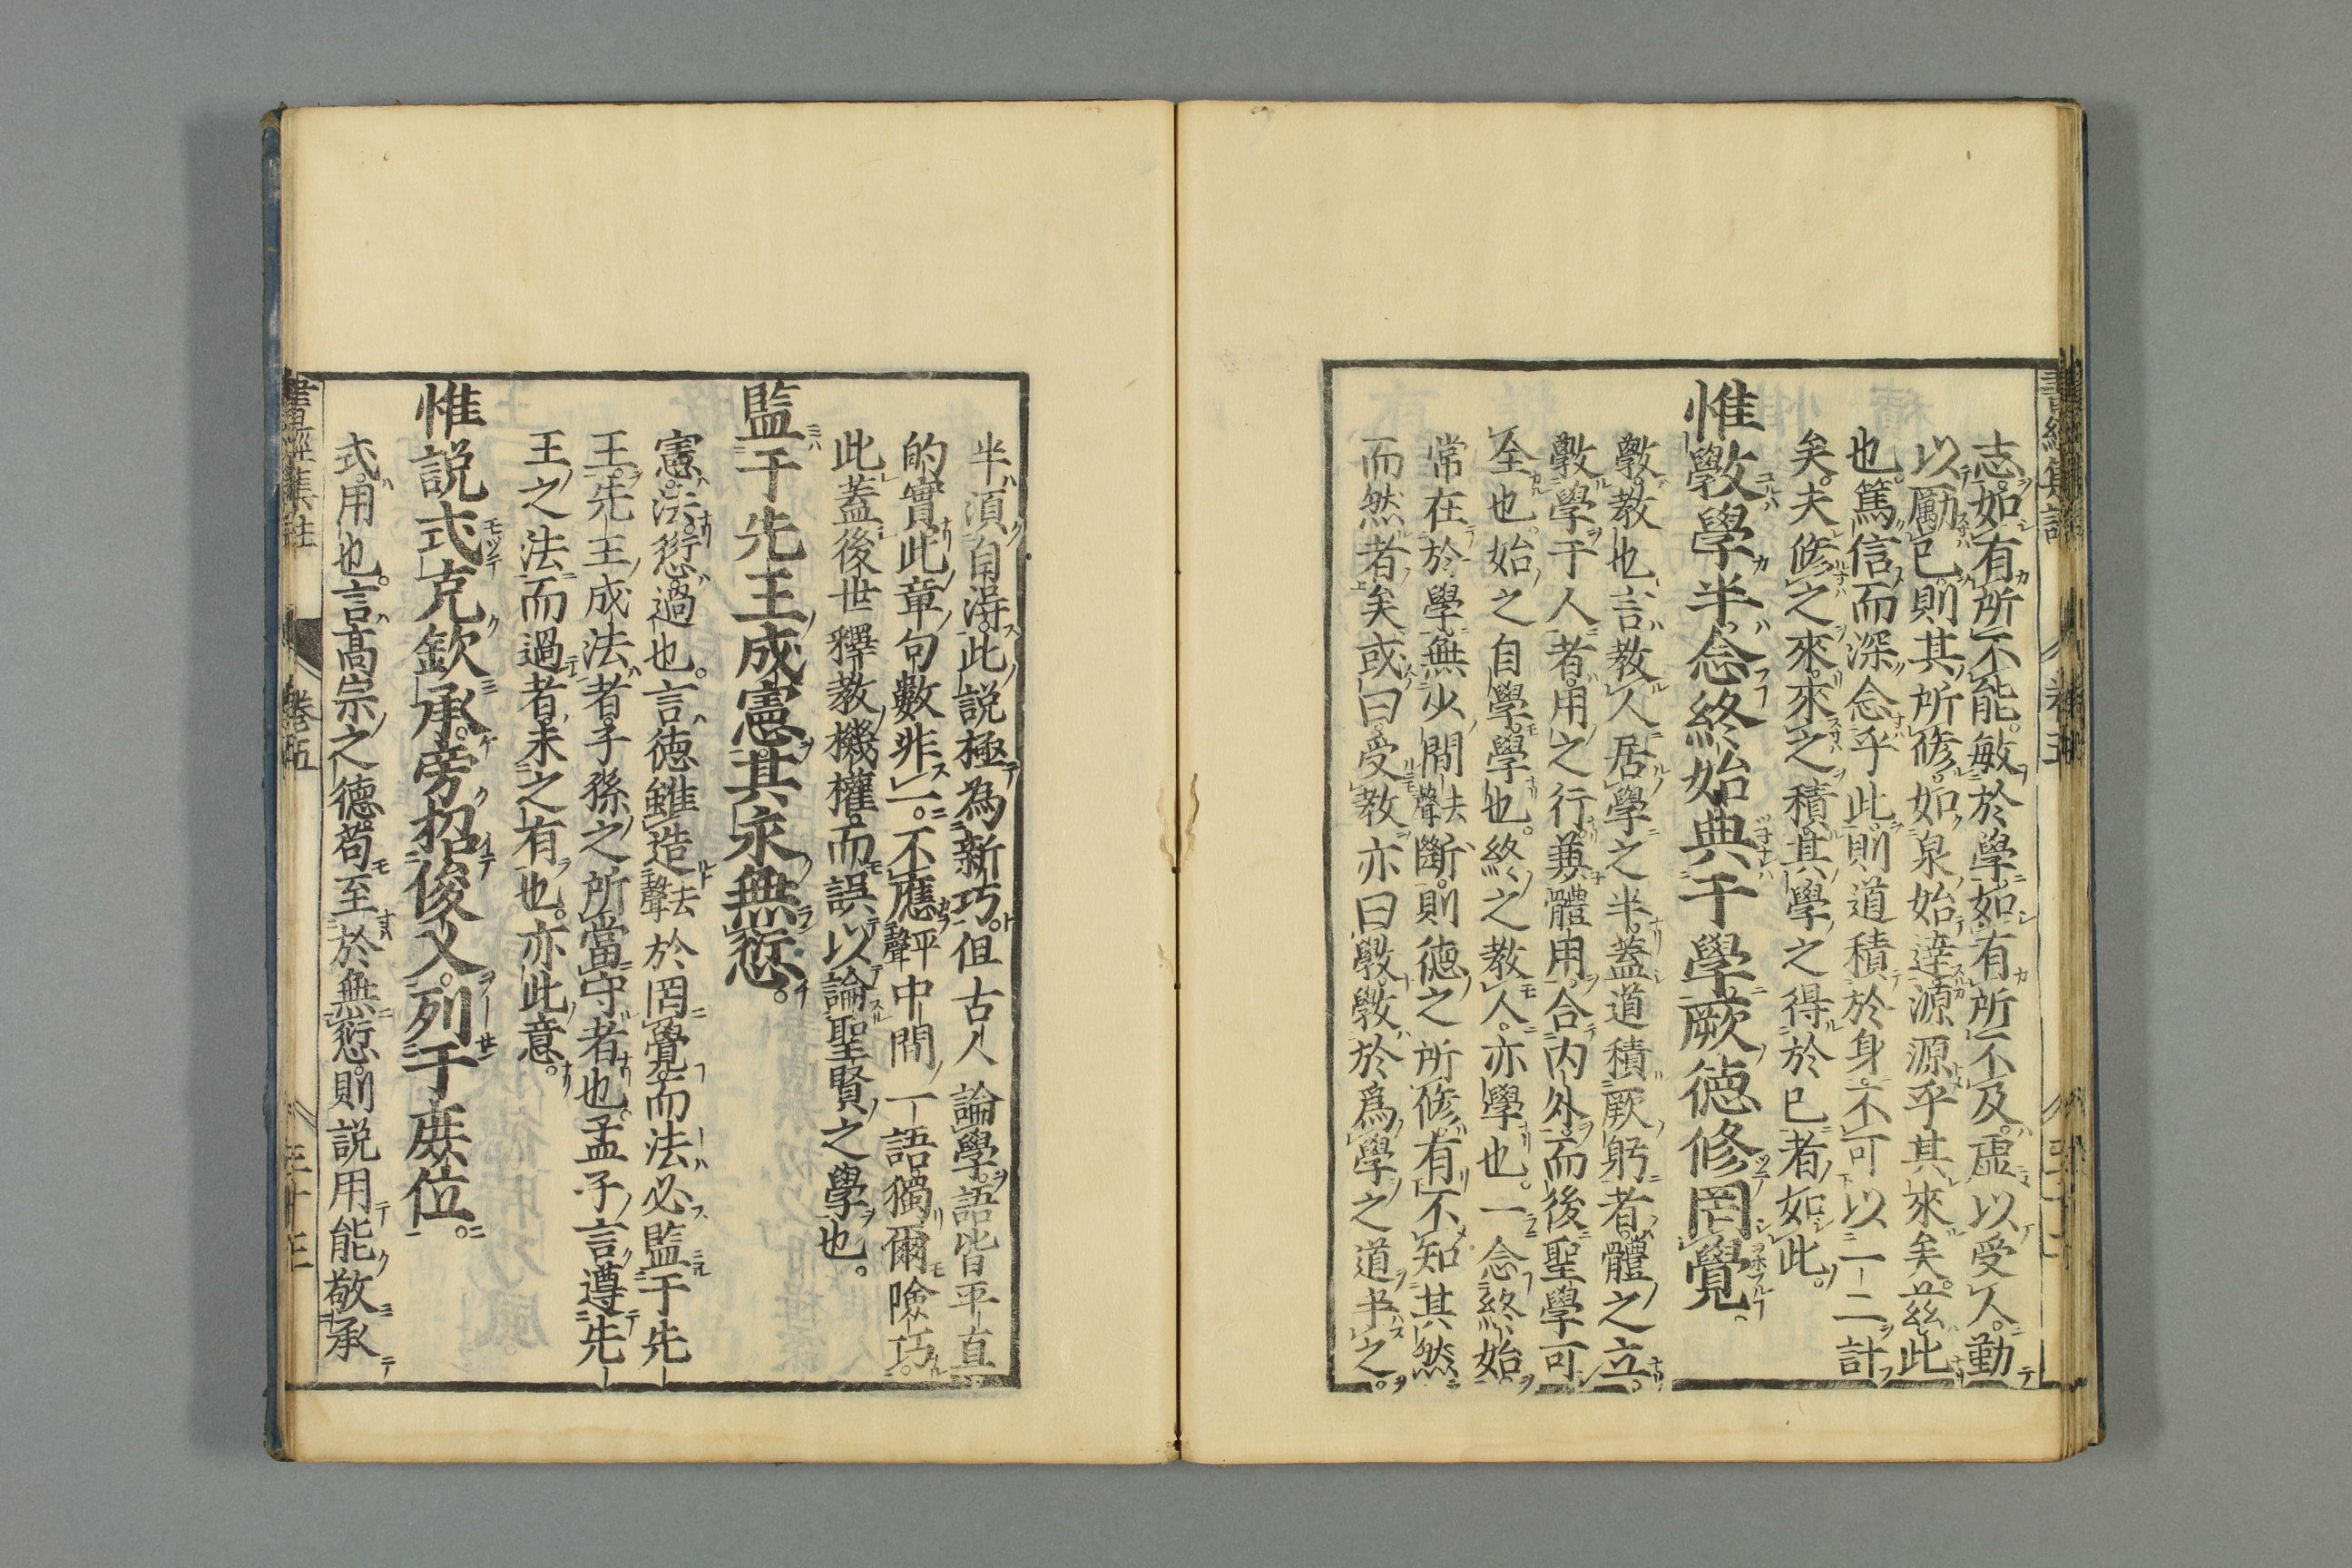 志。如有所不能。敏於學。如有所不及。虛以受人。勤
以勵己。則其所修。如泉始達。源源乎其來矣。茲此
也。篤信而深念乎此。則道積於身。不可以一二計
矣。夫修之來。來之積。其學之得於已者如此。
惟斅學半。念終始典于學。厥德修罔覺。
斅。教也。言教人居學之半。蓋道積厥躬者。體之立。
斅學于人者。用之行。兼體用。合内外。而後聖學可
全也。始之自學。學也。終之教人。亦學也。一念終始
常在於學。無少間去聲斷。則德之所修。有不知其然
而然者矣。或曰。受教亦曰斅。斅於爲學之道半之。
半須自得。此説極為新巧。但古人論學。語皆平直
的實。此章句數非一。不應平聲中間一語獨爾險巧。
此蓋後世釋教機權。而誤以論聖賢之學也。
監于先王成憲。其永無愆。
憲。法。愆。過也。言德雖造去聲於罔覺。而法必監于先
王。先王成法者。子孫之所當守者也。孟子言。遵先
王之法。而過者。未之有也。亦此意。
惟説式克欽承。旁招俊乂。列于庶位。
式。用也。言高宗之德。苟至於無愆。則説用能敬承
書經集註
卷五